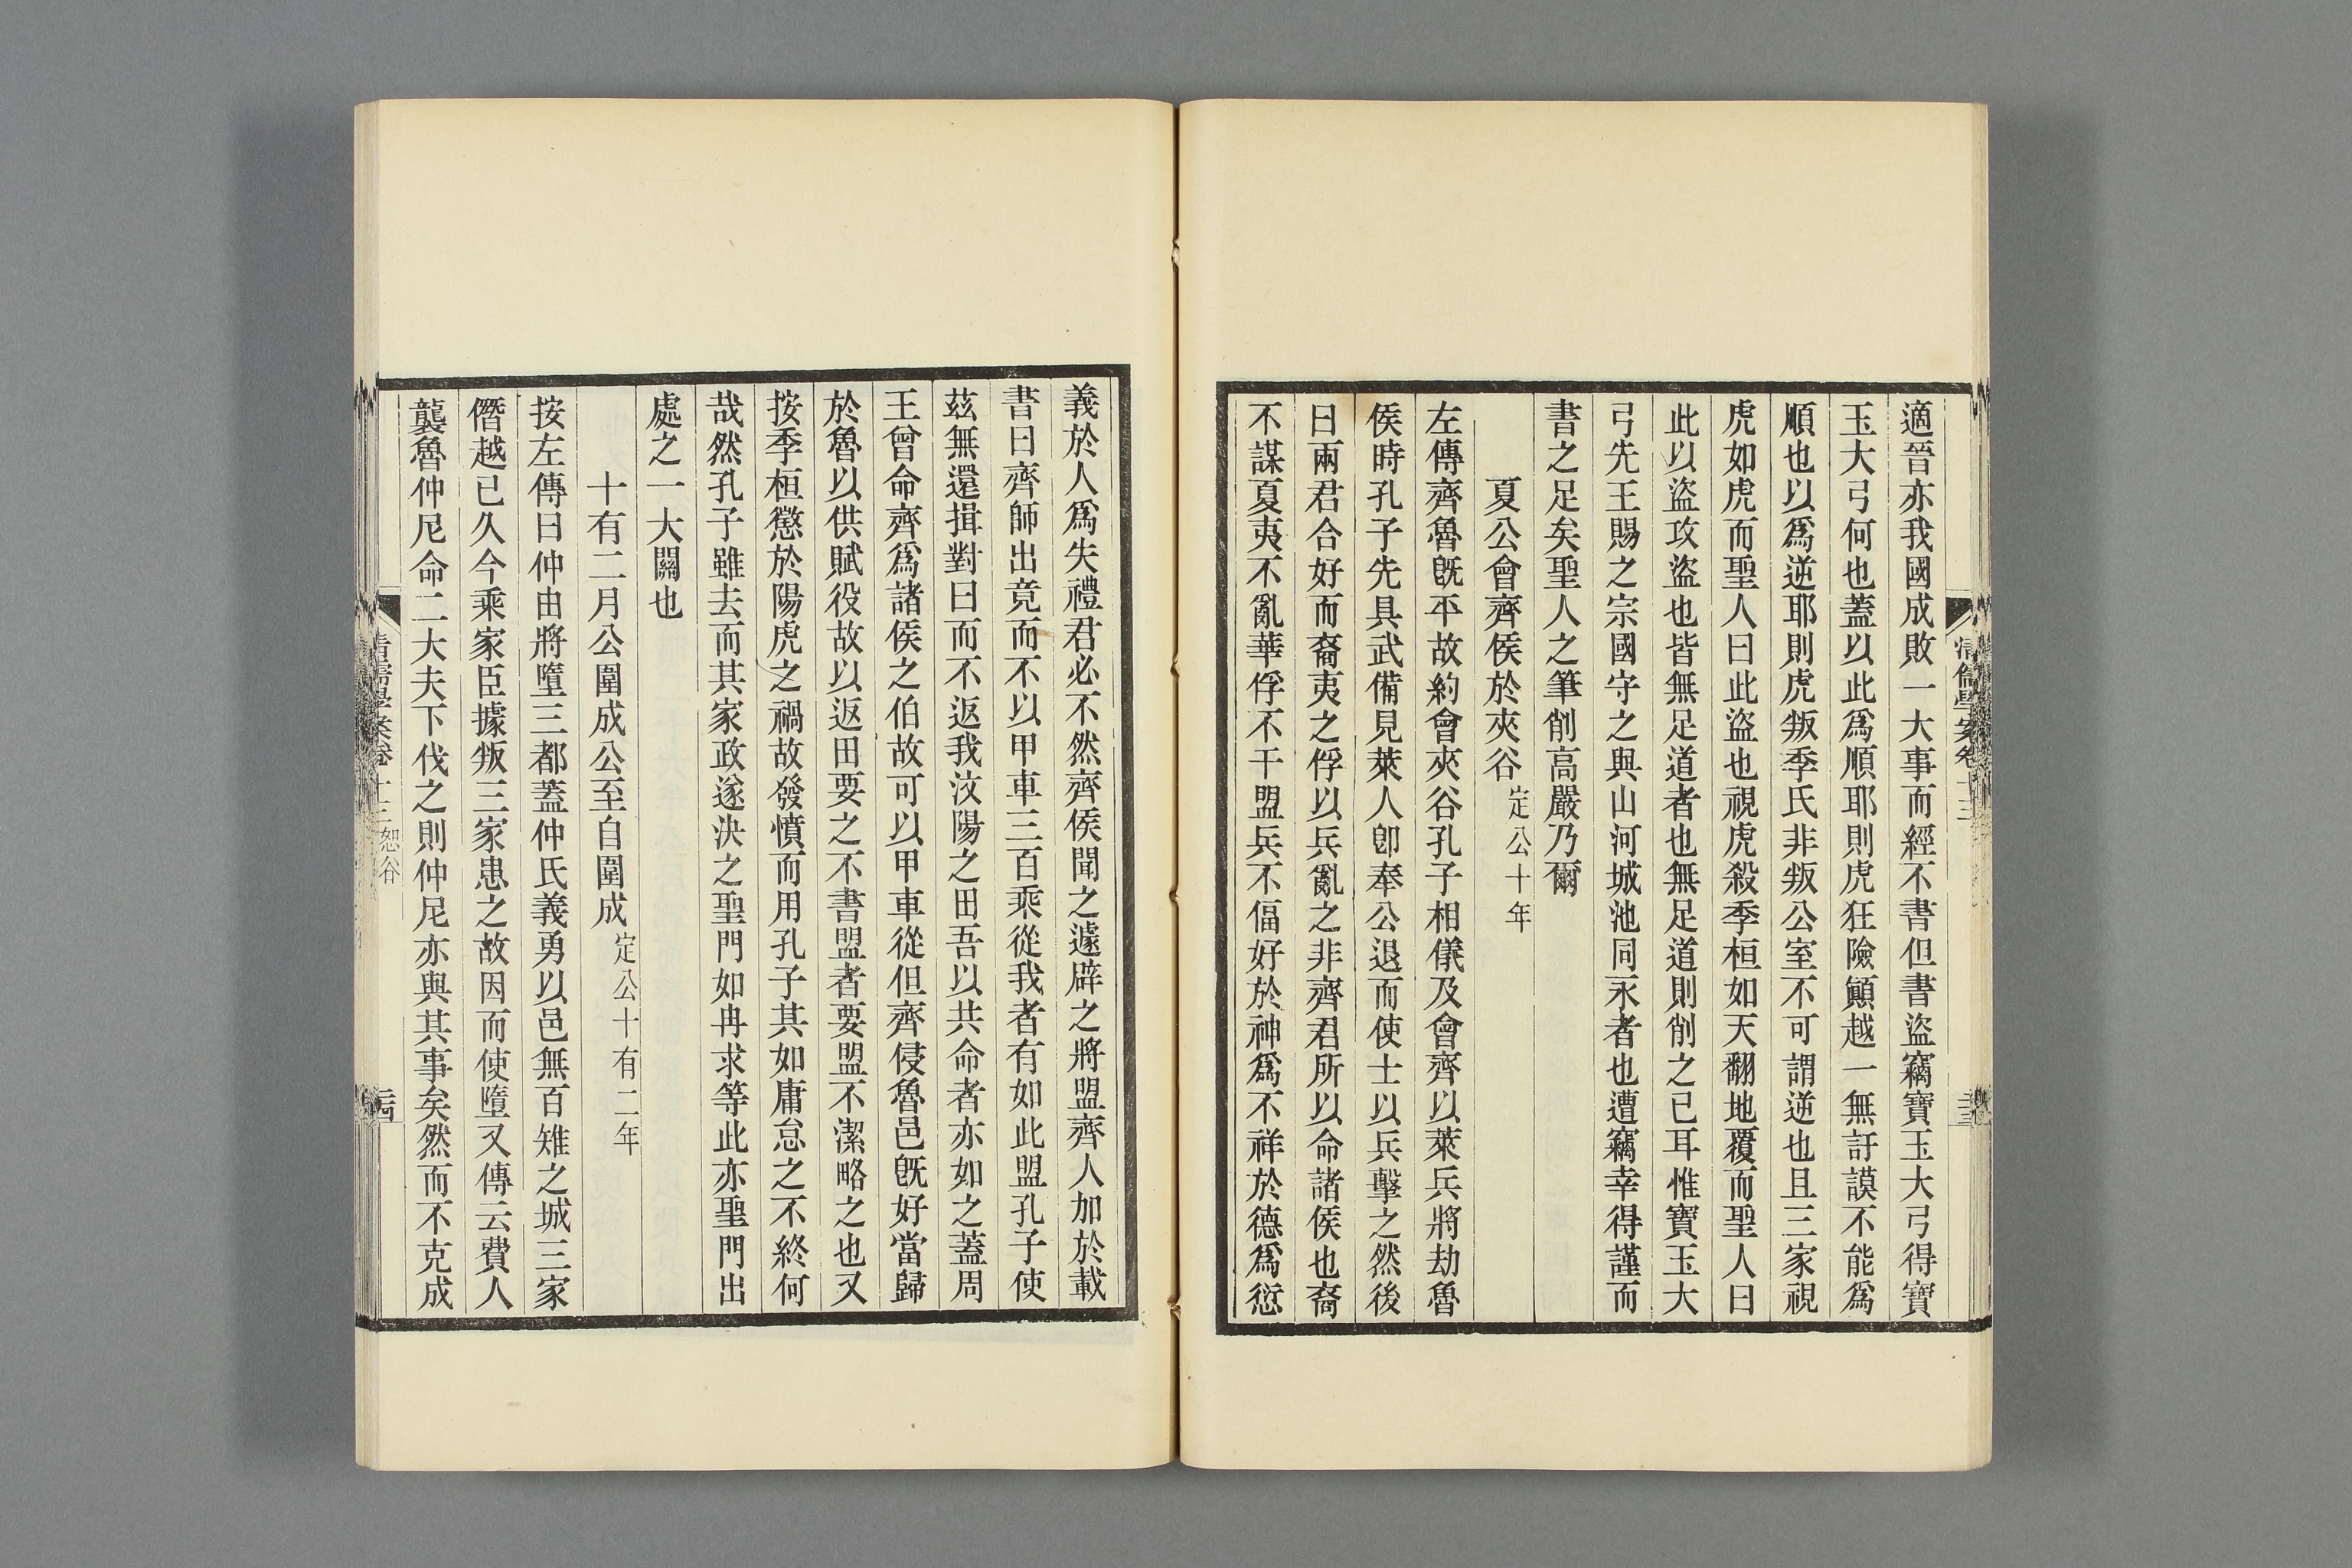 適晉亦我國成敗一大事而經不書但書盜竊寶玉大弓得寶
玉大弓何也蓋以此爲順耶則虎狂險顚越一無訏謨不能爲
順也以爲逆耶則虎叛季氏非叛公室不可謂逆也且三家視
虎如虎而聖人曰此盜也視虎殺季桓如天翻地覆而聖人曰
此以盜攻盜也皆無足道者也無足道則削之已耳惟寶玉大
弓先王賜之宗國守之與山河城池同永者也遭竊幸得謹而
書之足矣聖人之筆削高嚴乃爾
夏公會齊侯於夾谷定公十年
左傳齊魯旣平故約會夾谷孔子相儀及會齊以萊兵將劫魯
侯時孔子先具武備見萊人卽奉公退而使士以兵擊之然後
曰兩君合好而裔夷之俘以兵亂之非齊君所以命諸侯也裔
不謀夏夷不亂華俘不干盟兵不偪好於神爲不祥於德爲愆
清儒學案卷十三
義於人爲失禮君必不然齊侯聞之遽辟之將盟齊人加於載
書曰齊師出竟而不以甲車三百乘從我者有如此盟孔子使
茲無還揖對曰而不返我汶陽之田吾以共命者亦如之蓋周
王曾命齊爲諸侯之伯故可以甲車從但齊侵魯邑旣好當歸
於魯以供賦役故以返田要之不書盟者要盟不潔略之也又
按季桓懲於陽虎之禍故發憤而用孔子其如庸怠之不終何
哉然孔子雖去而其家政遂決之聖門如冉求等此亦聖門出
處之一大關也
十有二月公圍成公至自圍成定公十有二年
按左傳曰仲由將墮三都蓋仲氏義勇以邑無百雉之城三家
僭越已久今乘家臣據叛三家患之故因而使墮又傳云費人
襲魯仲尼命二大夫下伐之則仲尼亦與其事矣然而不克成
清儒學案卷十三 恕谷